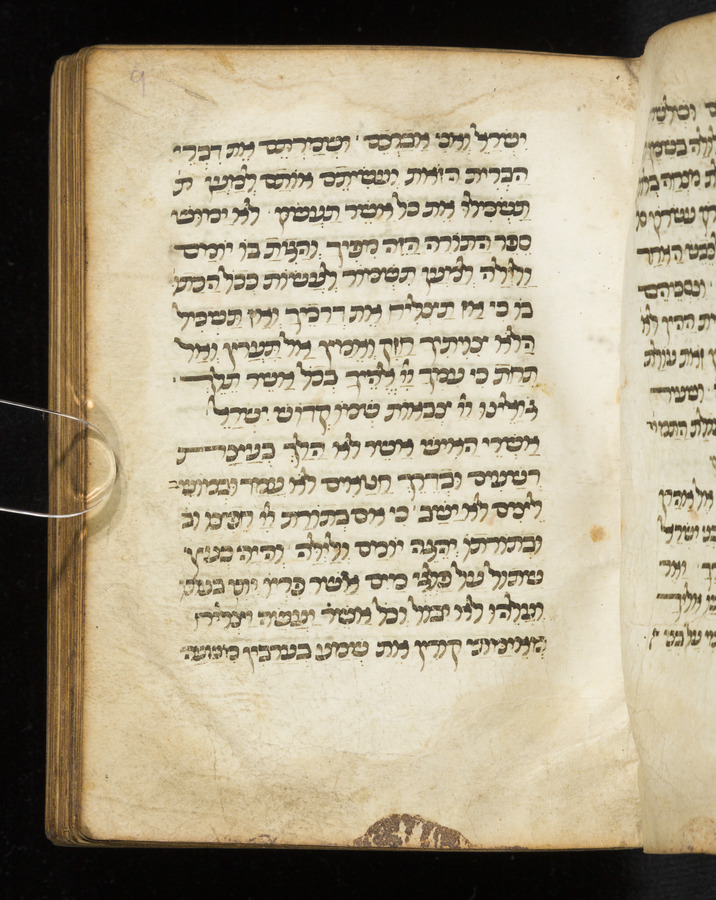 9
ישראל ואני אברכם ושמרתם את דברי
הברית הזאת ועשיתם אותם למען ת
תשכילו את כל אשר תעשון לא ימוש
ספר התורה הזה מפיך והגית בו יומם
ולילה למען תשמור לעשות ככל הכתו
בו כי אז תצליח את דרכיך ואז תשכיל
הלא צויתיך חזק ואמץ אל תערץ ואל
תחת כי עמך יי אלהיך בכל אשר תלך
גואלינו יי צבאות שמו קדוש ישראל
אשרי האיש אשר לא הלך בעצת
רשעים ובדרך חטאים לא עמד ובמוש
לצים לא ישב כי אם בתורת יי חפצו וב
ובתורתו יהגה יומם ולילה והיה כעץ
שתול על פלגי מים אשר פריו יתן בעתו
ועלהו לא יבול וכל אשר יעשה יצליח
קורין את שמע בערבין משעה